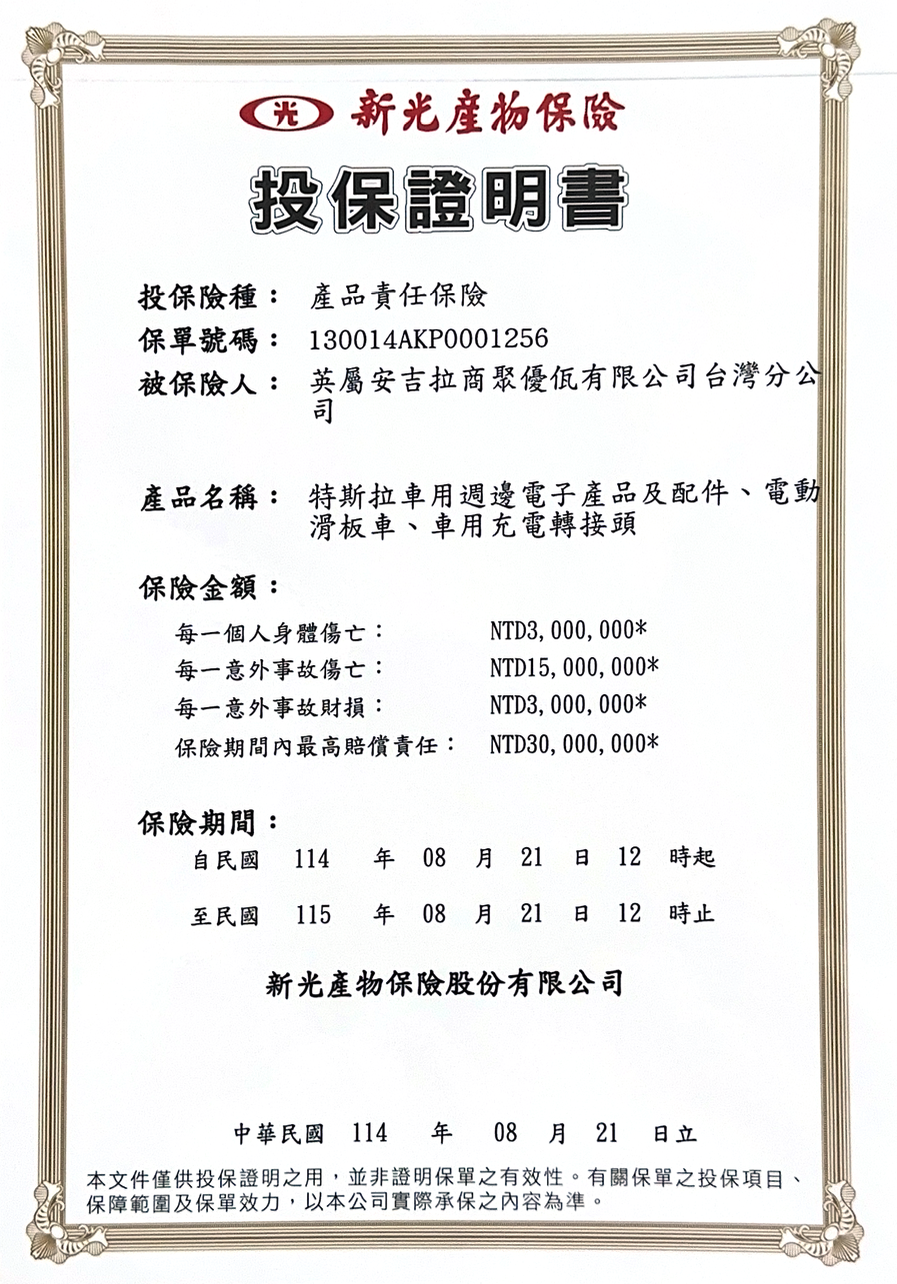 光 新光產物保險
投保證明書
投保險種： 產品責任保險
保單號碼： 130014AKP0001256
被保險人： 英屬安吉拉商聚優佤有限公司台灣分公
司
產品名稱： 特斯拉車用週邊電子產品及配件、電動
滑板車、車用充電轉接頭
保險金額：
每一個人身體傷亡： NTD3,000,000*
每一意外事故傷亡： NTD15,000,000*
每一意外事故財損： NTD3,000,000*
保險期間內最高賠償責任： NTD30,000,000*
保險期間：
自民國 114 年 08 月 21 日 12 時起
至民國 115 年 08 月 21 日 12 時止
新光產物保險股份有限公司
中華民國 114 年 08 月 21 日立
本文件僅供投保證明之用，並非證明保單之有效性。有關保單之投保項目、
保障範圍及保單效力，以本公司實際承保之內容為準。